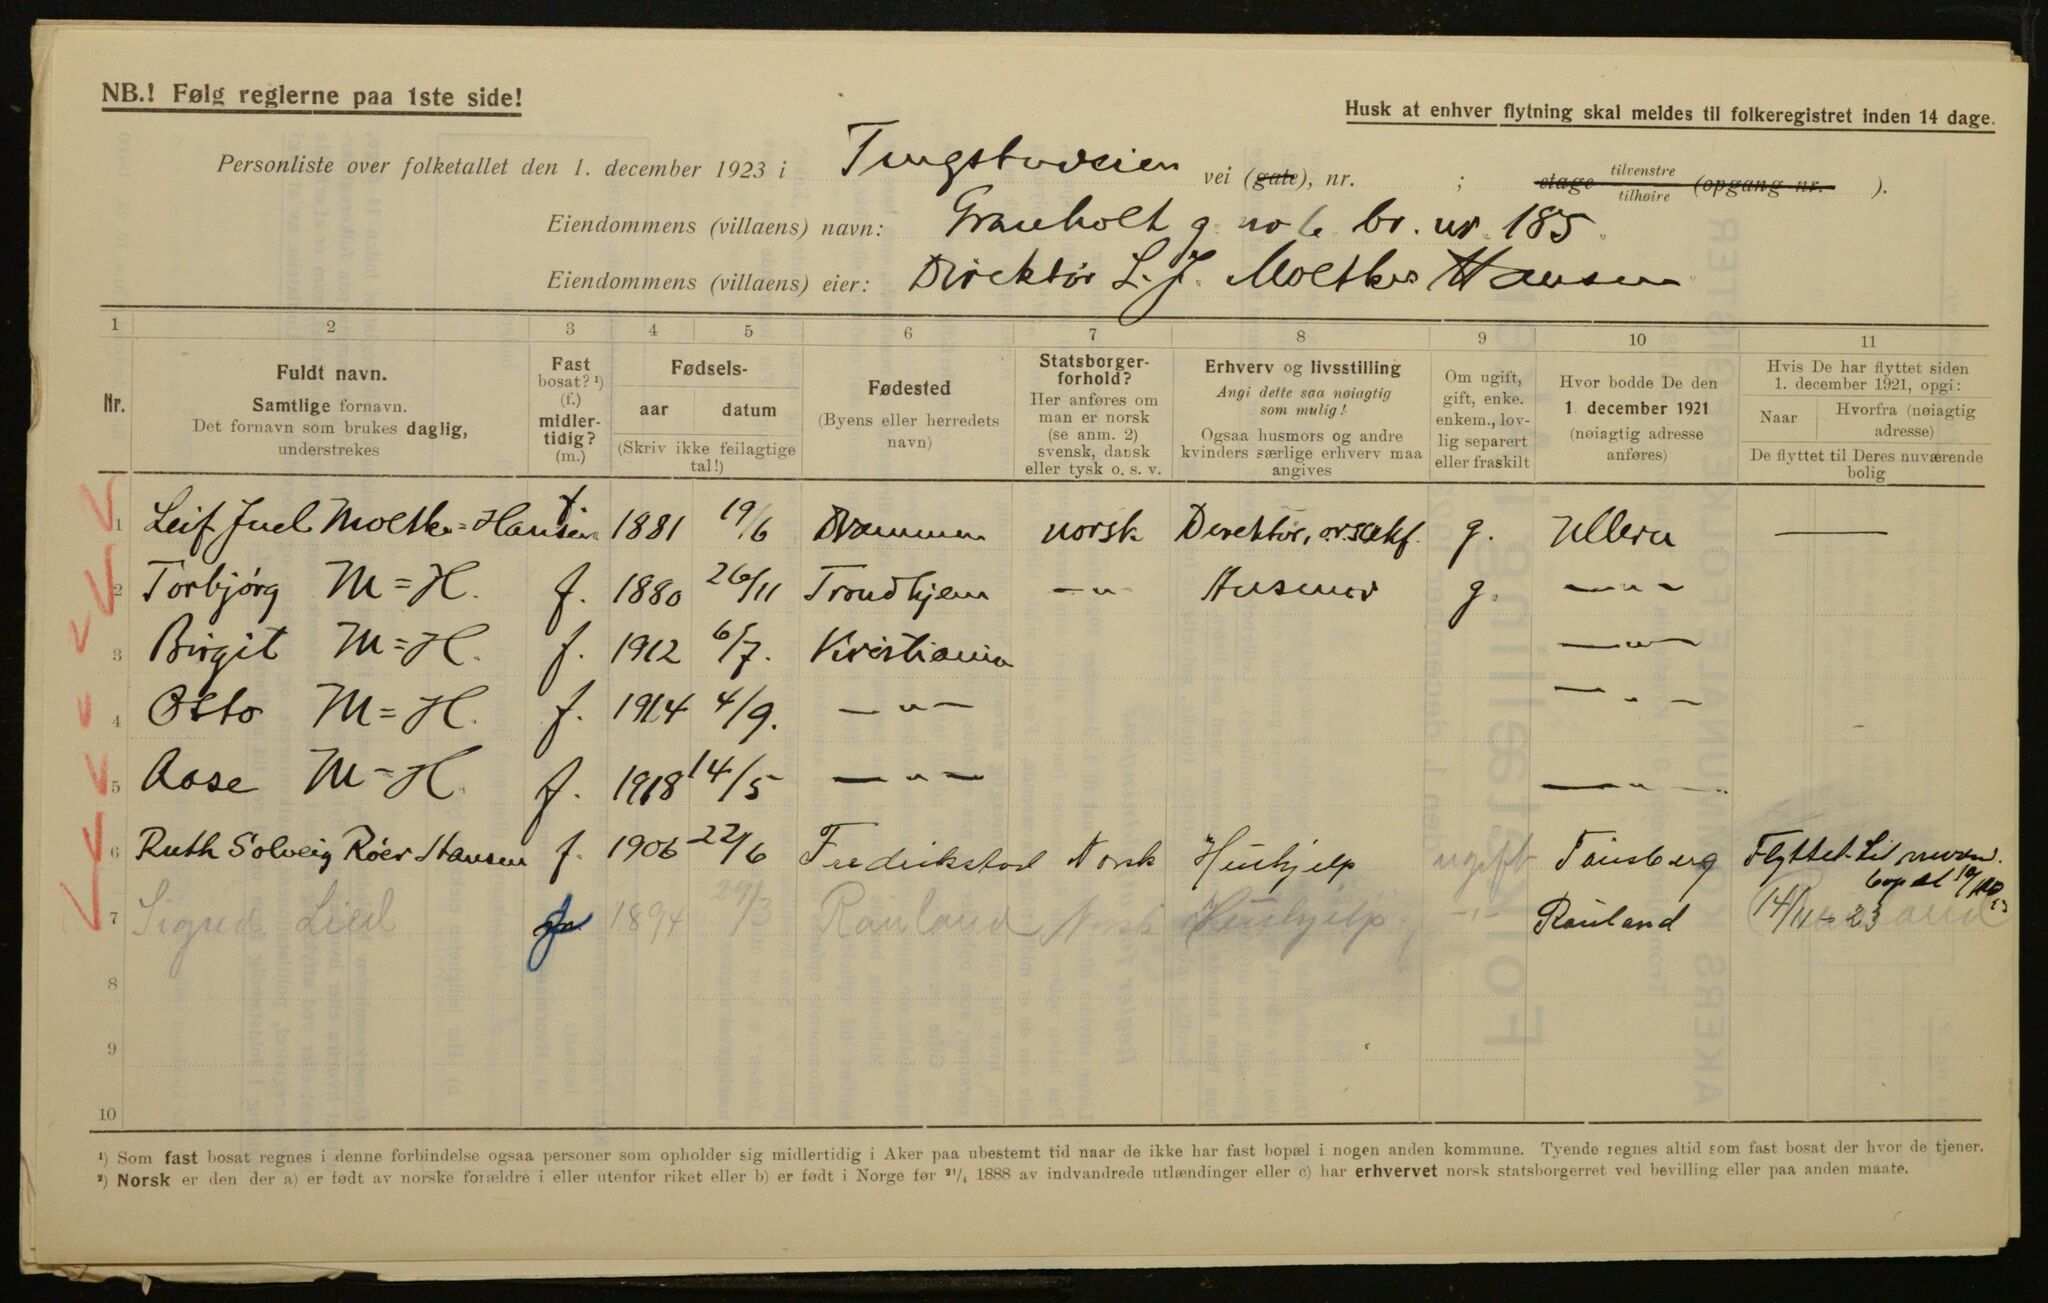 NB.! Følg reglerne paa 1ste side!
Husk at enhver flytning skal meldes til folkeregistret inden 14 dage.
Personliste over folketallet den 1. december 1923 i Tungstuveien vei (gate), nr. ; etage tilvenstre tilhøire (opgang nr. ).
Eiendommens (villaens) navn: Granholt g. no 6 br. nr. 185.
Eiendommens (villaens) eier: Direktør L. J. Moltke Hansen
1 2 3 4 5 6 7 8 9 10 11
Nr.
Fuldt navn.
Samtlige fornavn.
Det fornavn som brukes daglig,
understrekes
Fast
bosat? ¹)
(f.)
midler-
tidig?
(m.)
Fødsels-
aar datum
(Skriv ikke feilagtige
tal!)
Fødested
(Byens eller herredets
navn)
Statsborger-
forhold?
Her anføres om
man er norsk
(se anm. 2)
svensk, dansk
eller tysk o. s. v.
Erhverv og livsstilling
Angi dette saa nøiagtig
som mulig!
Ogsaa husmors og andre
kvinders særlige erhverv maa
angives
Om ugift,
gift, enke.
enkem., lov-
lig separert
eller fraskilt
Hvor bodde De den
1 december 1921
(nøiagtig adresse
anføres)
Hvis De har flyttet siden
1. december 1921, opgi:
Naar Hvorfra (nøiagtig
adresse)
De flyttet til Deres nuværende
bolig
1 Leif Juel Moltke=Hansen f. 1881 19/6 Drammen norsk Direktør, g. Ullern —
2 Torbjørg M=H. f. 1880 26/11 Trondhjem —"— Husmor g. —"—
3 Birgit M=H. f. 1912 6/7. Kristiania —"—
4 Otto M=H. f. 1914 4/9. —"— —"—
5 Aase M=H. f. 1918 14/5 —"— —"—
6 Ruth Solveig Röer Hansen f. 1906 22/6 Fredrikstad Norsk Hushjelp ugift Tönsberg Flyttet til nuvær.
bopæl
7 Sigrid Lied 1894 29/3 Rauland Norsk Hushjelp -"- Rauland 14/11-23
8
9
10
¹) Som fast bosat regnes i denne forbindelse ogsaa personer som opholder sig midlertidig i Aker paa ubestemt tid naar de ikke har fast bopæl i nogen anden kommune. Tyende regnes altid som fast bosat der hvor de tjener.
²) Norsk er den der a) er født av norske forældre i eller utenfor riket eller b) er født i Norge før ²¹/₄ 1888 av indvandrede utlændinger eller c) har erhvervet norsk statsborgerret ved bevilling eller paa anden maate.